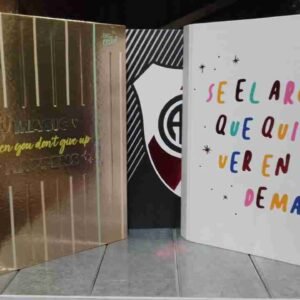 MAGIC
when you don't give up
HAPPENS
SE EL AR
QUE QUI
VER EN
DEMA